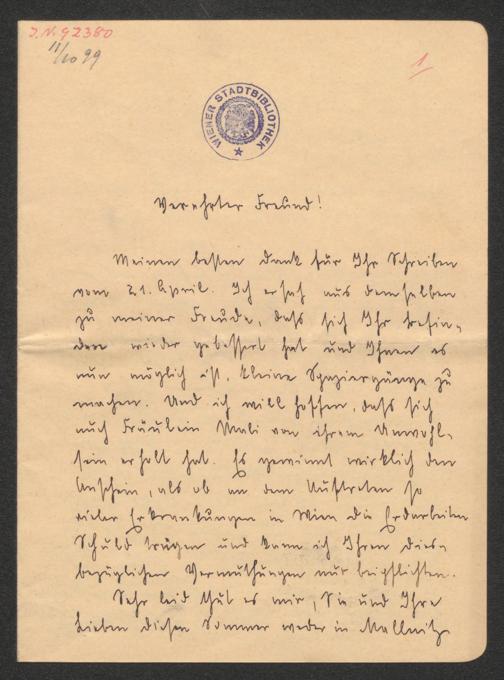 J.N. 92380
11/10 99
1
WIENER STADTBIBLIOTHEK
Verehrter Freund!
Meinen besten Dank für Ihr Schreiben
vom 21. April. Ich ersah aus demselben
zu meiner Freude, dass sich Ihr Befin-
den wieder gebessert hat und Ihnen es
nun möglich ist, kleine Spaziergänge zu
machen. Und ich will hoffen, dass sich
auch Fräulein Mali von ihrem Unwohl-
sein erholt hat. Es gewinnt wirklich den
Anschein, als ob an dem Auftreten so
vieler Erkrankungen in Wien die Erdarbeiten
Schuld trügen und kann ich Ihren dies-
bezüglichen Vermuthungen nur beipflichten.
Sehr leid thut es mir, Sie und Ihre
Lieben diesen Sommer weder in Mallnitz